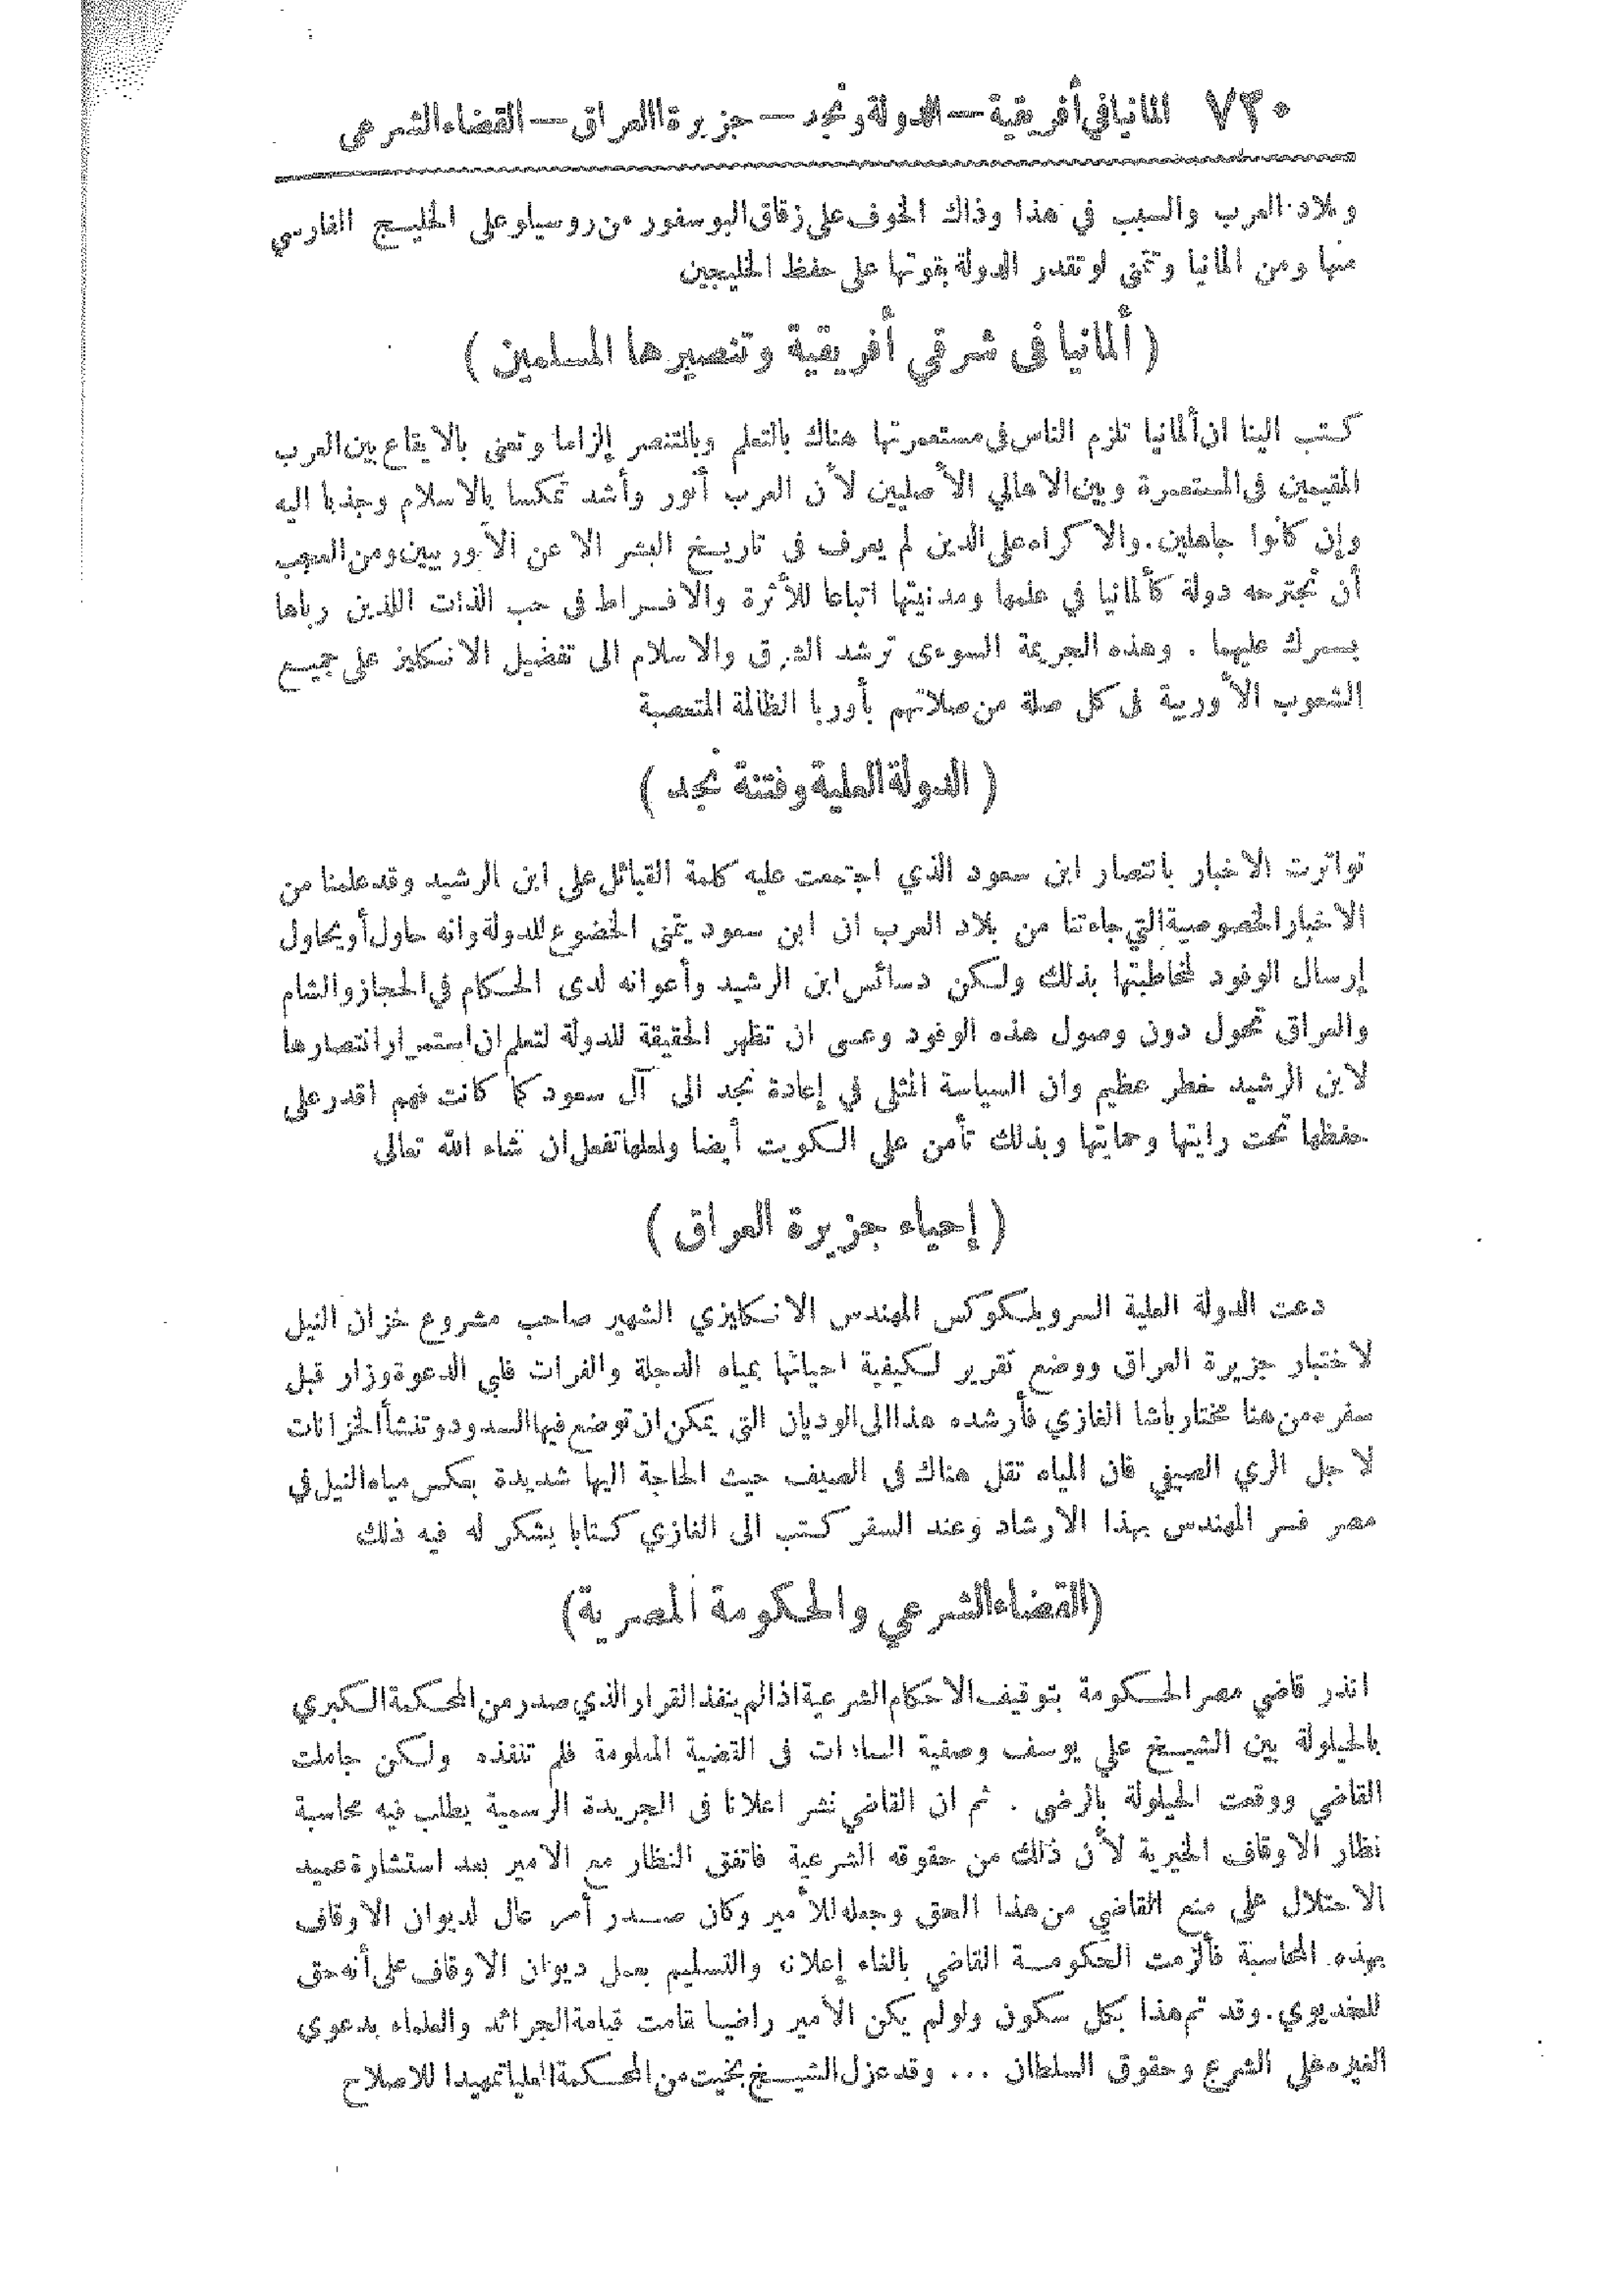 ٧٢٠ المانيا في أفريقية — الدولة ونجد — جزيرة العراق — القضاء الشرعي
وبلاد العرب والسبب في هذا وذاك الخوف على زقاق البوسفور من روسيا وعلى الخليج الفارسي
منها ومن المانيا وتتمنى لو تقدر الدولة بقوتها على حفظ الخليجين
( ألمانيا في شرقي أفريقية وتنصيرها المسلمين )
كتب الينا ان ألمانيا تلزم الناس في مستعمرتها هناك بالتعلم وبالتنصر إلزاما وتعنى بالايقاع بين العرب
المقيمين في المستعمرة وبين الاهالي الأصليين لأن العرب أنور وأشد تمكسا بالاسلام وجذبا اليه
وإن كانوا جاهلين. والاكراه على الدين لم يعرف في تاريخ البشر الا عن الأوربيين ومن العجب
أن تجترحه دولة كألمانيا في علمها ومدنيتها اتباعا للأثرة والافراط في حب الذات اللذين رباها
بسمرك عليهما . وهذه الجريمة السوءى ترشد الشرق والاسلام الى تفضيل الانكليز على جميع
الشعوب الأوربية في كل صلة من صلاتهم بأوربا الظالمة المتعصبة
( الدولة العلية وفتنة نجد )
تواترت الاخبار بانتصار ابن سعود الذي اجتمعت عليه كلمة القبائل على ابن الرشيد وقد علمنا من
الاخبار الخصوصية التي جاءتنا من بلاد العرب ان ابن سعود يتمنى الخضوع للدولة وانه حاول أو يحاول
إرسال الوفود لمخاطبتها بذلك ولكن دسائس ابن الرشيد وأعوانه لدى الحكام في الحجاز والشام
والعراق تحول دون وصول هذه الوفود وعسى ان تظهر الحقيقة للدولة لتعلم ان استمرار انتصارها
لابن الرشيد خطر عظيم وان السياسة المثلى في إعادة نجد الى آل سعود كما كانت فهم اقدر على
حفظها تحت رايتها وحمايتها وبذلك تأمن على الكويت أيضا ولعلها تفعل ان شاء الله تعالى
( إحياء جزيرة العراق )
دعت الدولة العلية السر ويلكوكس المهندس الانكليزي الشهير صاحب مشروع خزان النيل
لاختبار جزيرة العراق ووضع تقرير لكيفية احيائها بمياه الدجلة والفرات فلبى الدعوة وزار قبل
سفره من هنا مختار باشا الغازي فأرشده هذا الى الوديان التي يمكن ان توضع فيها السدود وتنشأ الخزانات
لاجل الري الصيفي فان المياه تقل هناك في الصيف حيث الحاجة اليها شديدة بعكس مياه النيل في
مصر فسر المهندس بهذا الارشاد وعند السفر كتب الى الغازي كتابا يشكر له فيه ذلك
(القضاء الشرعي والحكومة المصرية)
انذر قاضي مصر الحكومة بتوقيف الاحكام الشرعية اذا لم ينفذ القرار الذي صدر من المحكمة الكبرى
بالحيلولة بين الشيخ علي يوسف وصفية السادات في القضية المعلومة فلم تنفذه ولكن جاملت
القاضي ووقعت الحيلولة بالرضى . ثم ان القاضي نشر اعلانا في الجريدة الرسمية يطلب فيه محاسبة
نظار الاوقاف الخيرية لأن ذلك من حقوقه الشرعية فاتفق النظار مع الامير بعد استشارة عميد
الاحتلال على منع القاضي من هذا الحق وجعله للأمير وكان صدر أمر عال لديوان الاوقاف
بهذه المحاسبة فألزمت الحكومة القاضي بالغاء إعلانه والتسليم بعمل ديوان الاوقاف على أنه حق
للخديوي. وقد تم هذا بكل سكون ولو لم يكن الأمير راضيا قامت قيامة الجرائد والعلماء بدعوى
الغيرة على الشرع وحقوق السلطان ... وقد عزل الشيخ بخيت من المحكمة العليا تمهيدا للاصلاح